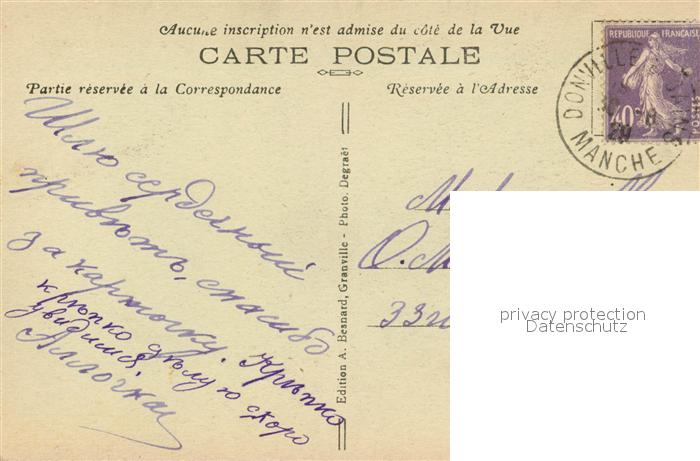 Aucune inscription n'est admise du côté de la Vue
CARTE POSTALE
Partie réservée à la Correspondance
Réservée à l'Adresse
REPUBLIQUE FRANÇAISE
40
POSTES
DONVILLE
MANCHE
29
Шлю сердечный
привѣтъ, спасибо
за карточку. Крѣпко
крѣпко цѣлую скоро
увидимся.
Аллочка
Edition A. Besnard, Granville - Photo. Degraët
M
O. M
33
privacy protection
Datenschutz